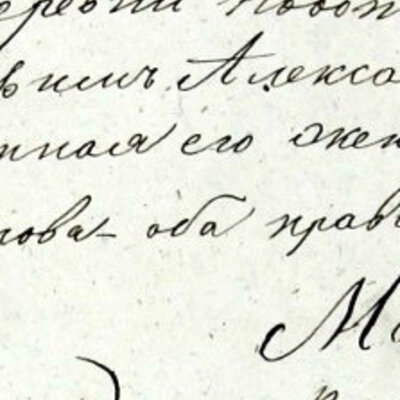 деревни Ново
вимъ Алекса
нная его жен
нова - оба прав
М